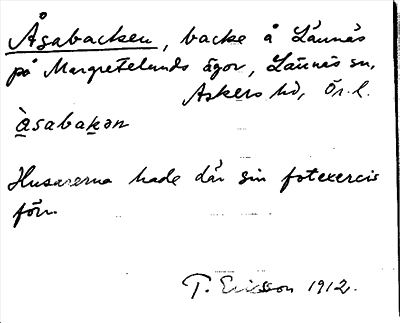 Åsabacken, backe å Lännäs
på Margretelunds ägor, Lännäs sn,
Askers hd, Ör. l.
åsabakən
Husarerna hade där sin fotexercis
förr.
T. Ericsson 1912.